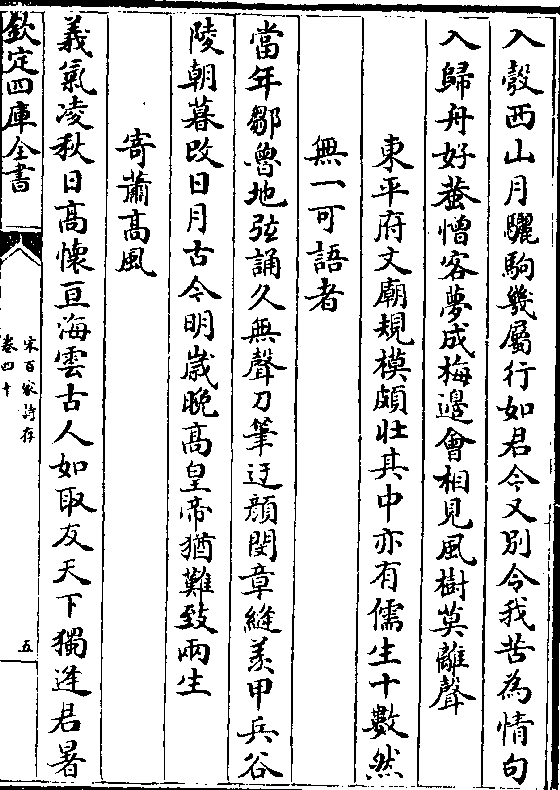 入彀西山月驪駒幾屬行如君今又别令我苦為情句
入歸舟好蛩憎客夢成梅邊會相見風樹莫離聲
東平府文廟規模頗壯其中亦有儒生十數然
無一可語者
當年鄒魯地弦誦久無聲刀筆迂顔閔章縫羡甲兵谷
陵朝暮改日月古今明歲晚高皇帝猶難致兩生
寄蕭高風
義氣凌秋日高懷亘海雲古人如取友天下獨逢君暑
欽定四庫全書
宋百家詩存
卷四十
五